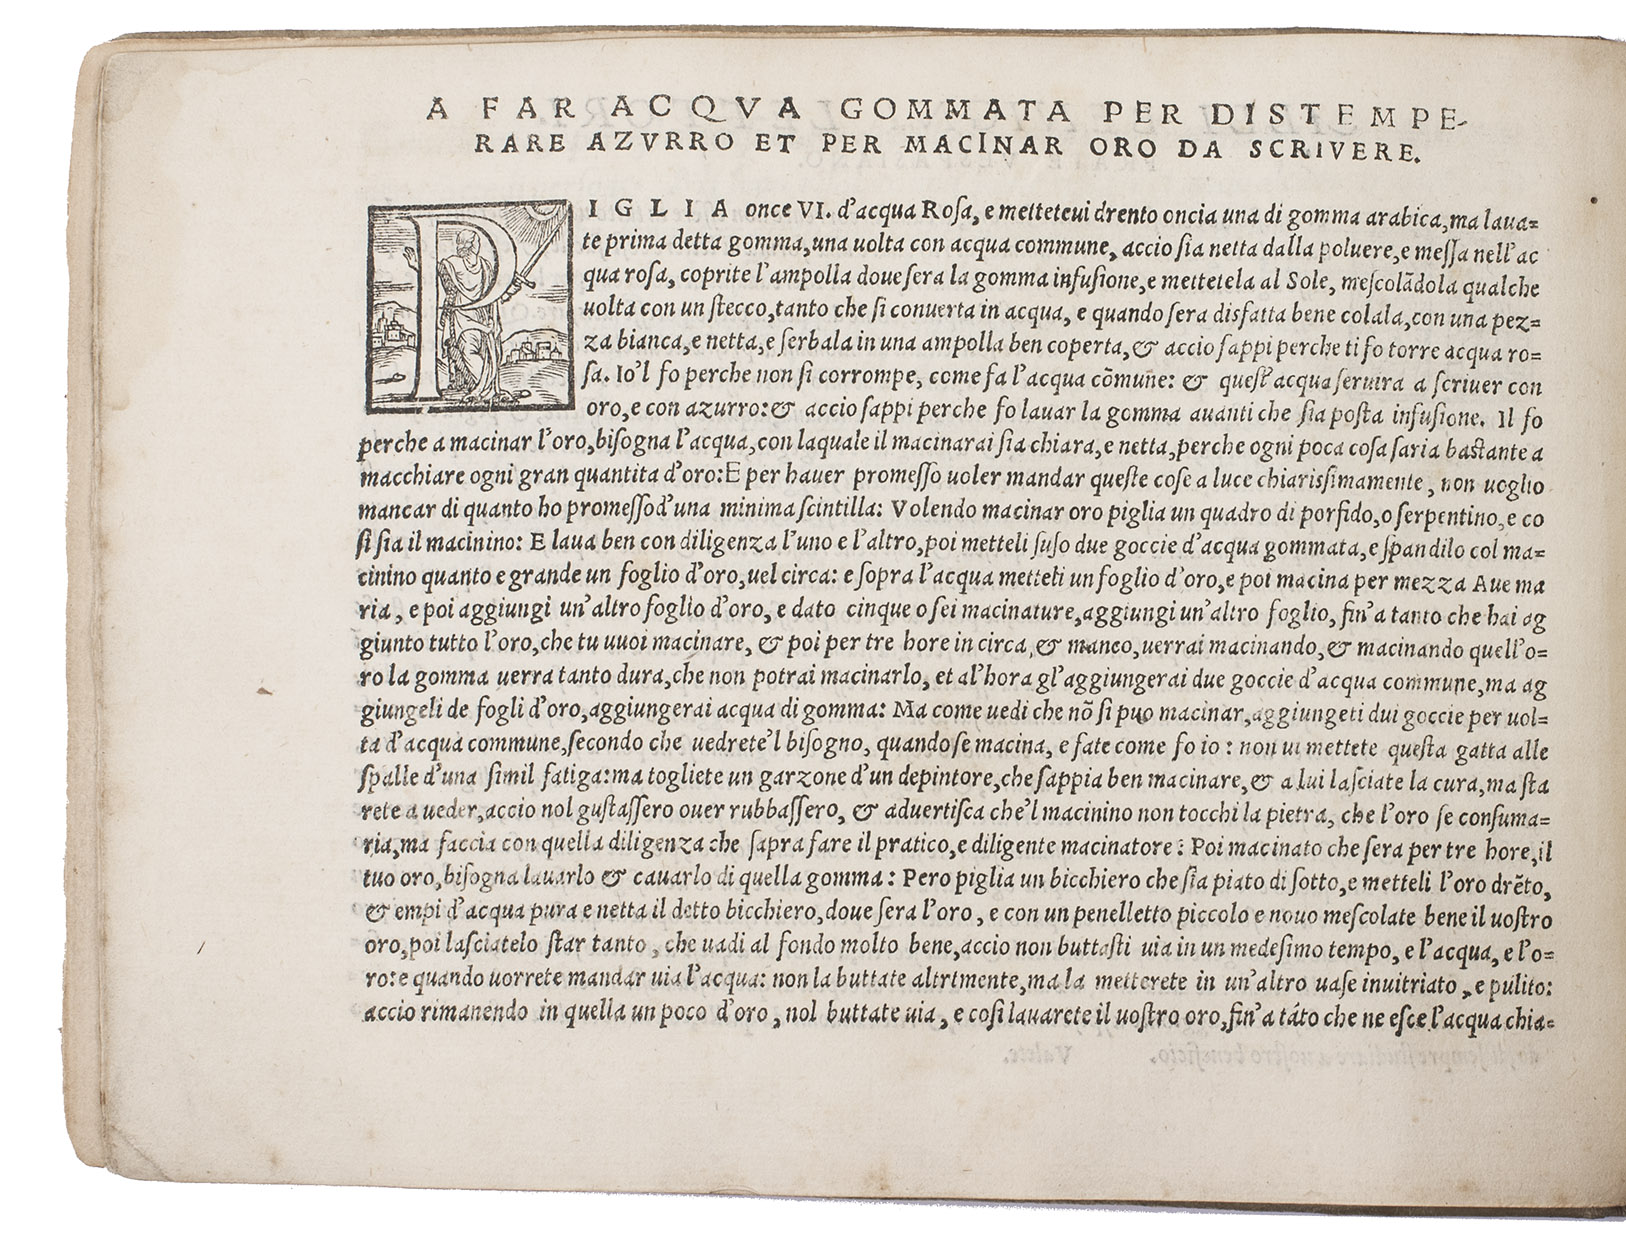 A FAR ACQVA GOMMATA PER DISTEMPE-
RARE AZVRRO ET PER MACINAR ORO DA SCRIVERE.
PIGLIA once VI. d'acqua Rosa, e metteteui drento oncia una di gomma arabica, ma laua=
te prima detta gomma, una uolta con acqua commune, accio sia netta dalla poluere, e messa nell'ac
qua rosa, coprite l'ampolla doue sera la gomma infusione, e mettetela al Sole, mescolādola qualche
uolta con un stecco, tanto che si conuerta in acqua, e quando sera disfatta bene colala, con una pez=
za bianca, e netta, e serbala in una ampolla ben coperta, & accio sappi perche ti fo torre acqua ro=
sa. Io'l fo perche non si corrompe, come fa l'acqua cōmune: & quest'acqua seruira a scriuer con
oro, e con azurro: & accio sappi perche fo lauar la gomma auanti che sia posta infusione. Il fo
perche a macinar l'oro, bisogna l'acqua, con laquale il macinarai sia chiara, e netta, perche ogni poca cosa saria bastante a
macchiare ogni gran quantita d'oro: E per hauer promesso uoler mandar queste cose a luce chiarissimamente, non uoglio
mancar di quanto ho promesso d'una minima scintilla: Volendo macinar oro piglia un quadro di porfido, o serpentino, e co
si sia il macinino: E laua ben con diligenza l'uno e l'altro, poi metteli suso due goccie d'acqua gommata, e spandilo col ma=
cinino quanto e grande un foglio d'oro, uel circa: e sopra l'acqua metteti un foglio d'oro, e poi macina per mezza Aue ma
ria, e poi aggiungi un'altro foglio d'oro, e dato cinque o sei macinature, aggiungi un'altro foglio, fin'a tanto che hai ag
giunto tutto l'oro, che tu uuoi macinare, & poi per tre hore in circa, & manco, uerrai macinando, & macinando quell'o=
ro la gomma uerra tanto dura, che non potrai macinarlo, et al'hora gl'aggiungerai due goccie d'acqua commune, ma ag
giungeli de fogli d'oro, aggiungerai acqua di gomma: Ma come uedi che nō si puo macinar, aggiungeti dui goccie per uol=
ta d'acqua commune, secondo che uedrete'l bisogno, quando se macina, e fate come fo io: non ui mettete questa gatta alle
spalle d'una simil fatiga: ma togliete un garzone d'un depintore, che sappia ben macinare, & a lui lasciate la cura, ma sta
rete a ueder, accio nol gustassero ouer rubbassero, & advertisca che'l macinino non tocchi la pietra, che l'oro se consuma=
ria, ma faccia con quella diligenza che sapra fare il pratico, e diligente macinatore: Poi macinato che sera per tre hore, il
tuo oro, bisogna lauarlo & cauarlo di quella gomma: Pero piglia un bicchiero che sia piato di sotto, e metteli l'oro drēto,
& empi d'acqua pura e netta il detto bicchiero, doue sera l'oro, e con un penelletto piccolo e nouo mescolate bene il uostro
oro, poi lasciatelo star tanto, che uadi al fondo molto bene, accio non buttasti uia in un medesimo tempo, e l'acqua, e l'o=
ro: e quando uorrete mandar uia l'acqua: non la buttate altrimente, ma la metterete in un'altro uase inuitriato, e pulito:
accio rimanendo in quella un poco d'oro, nol buttate uia, e cosi lauarete il uostro oro, fin'a tāto che ne esce l'acqua chia=